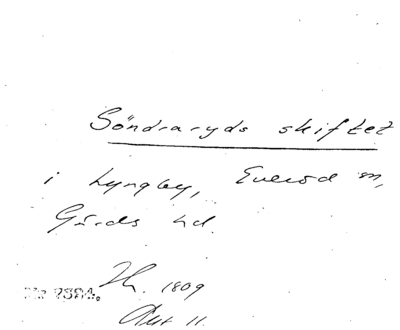 Söndraryds skiftet
i Lyngby, Everöd sn,
Gärds hd.
Th. 1809
Akt 11.